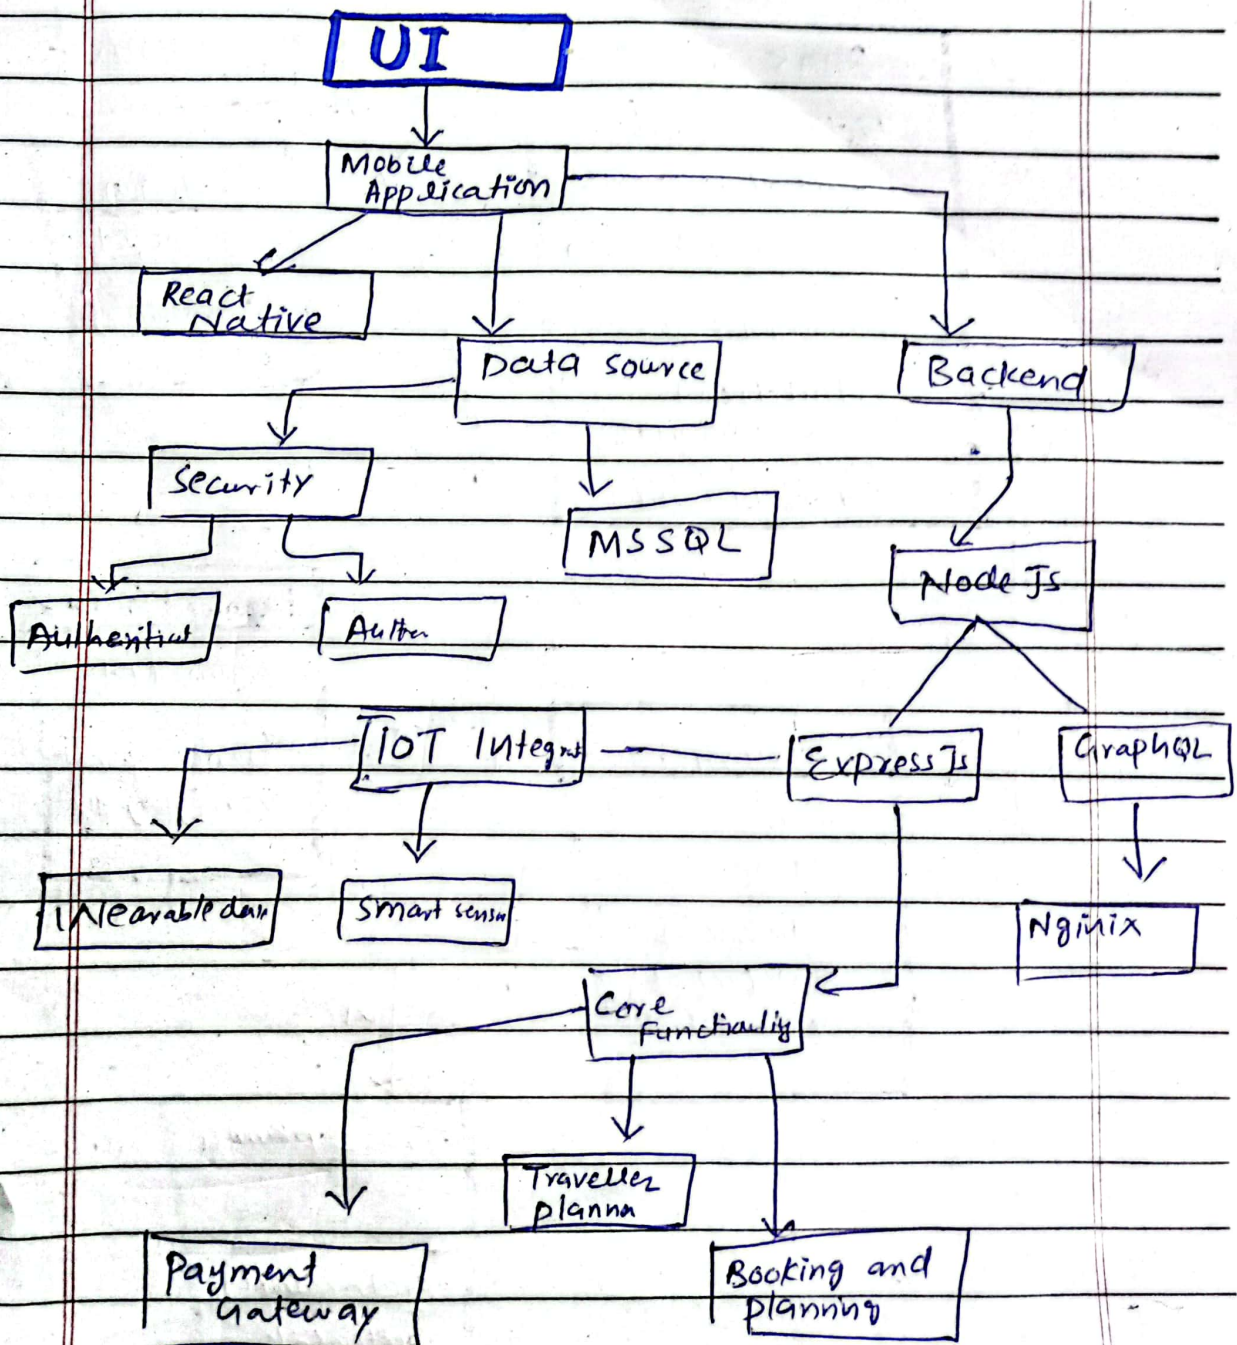 UI
Mobile
Application
React
Native
Data Source
Backend
Security
MSSQL
Node Js
Authenticat
Authn
IOT Integrat
Express Js
GraphQL
Wearable
Smart sensor
Nginix
Core
Functionality
Traveller
planna
Payment
Gateway
Booking and
planning